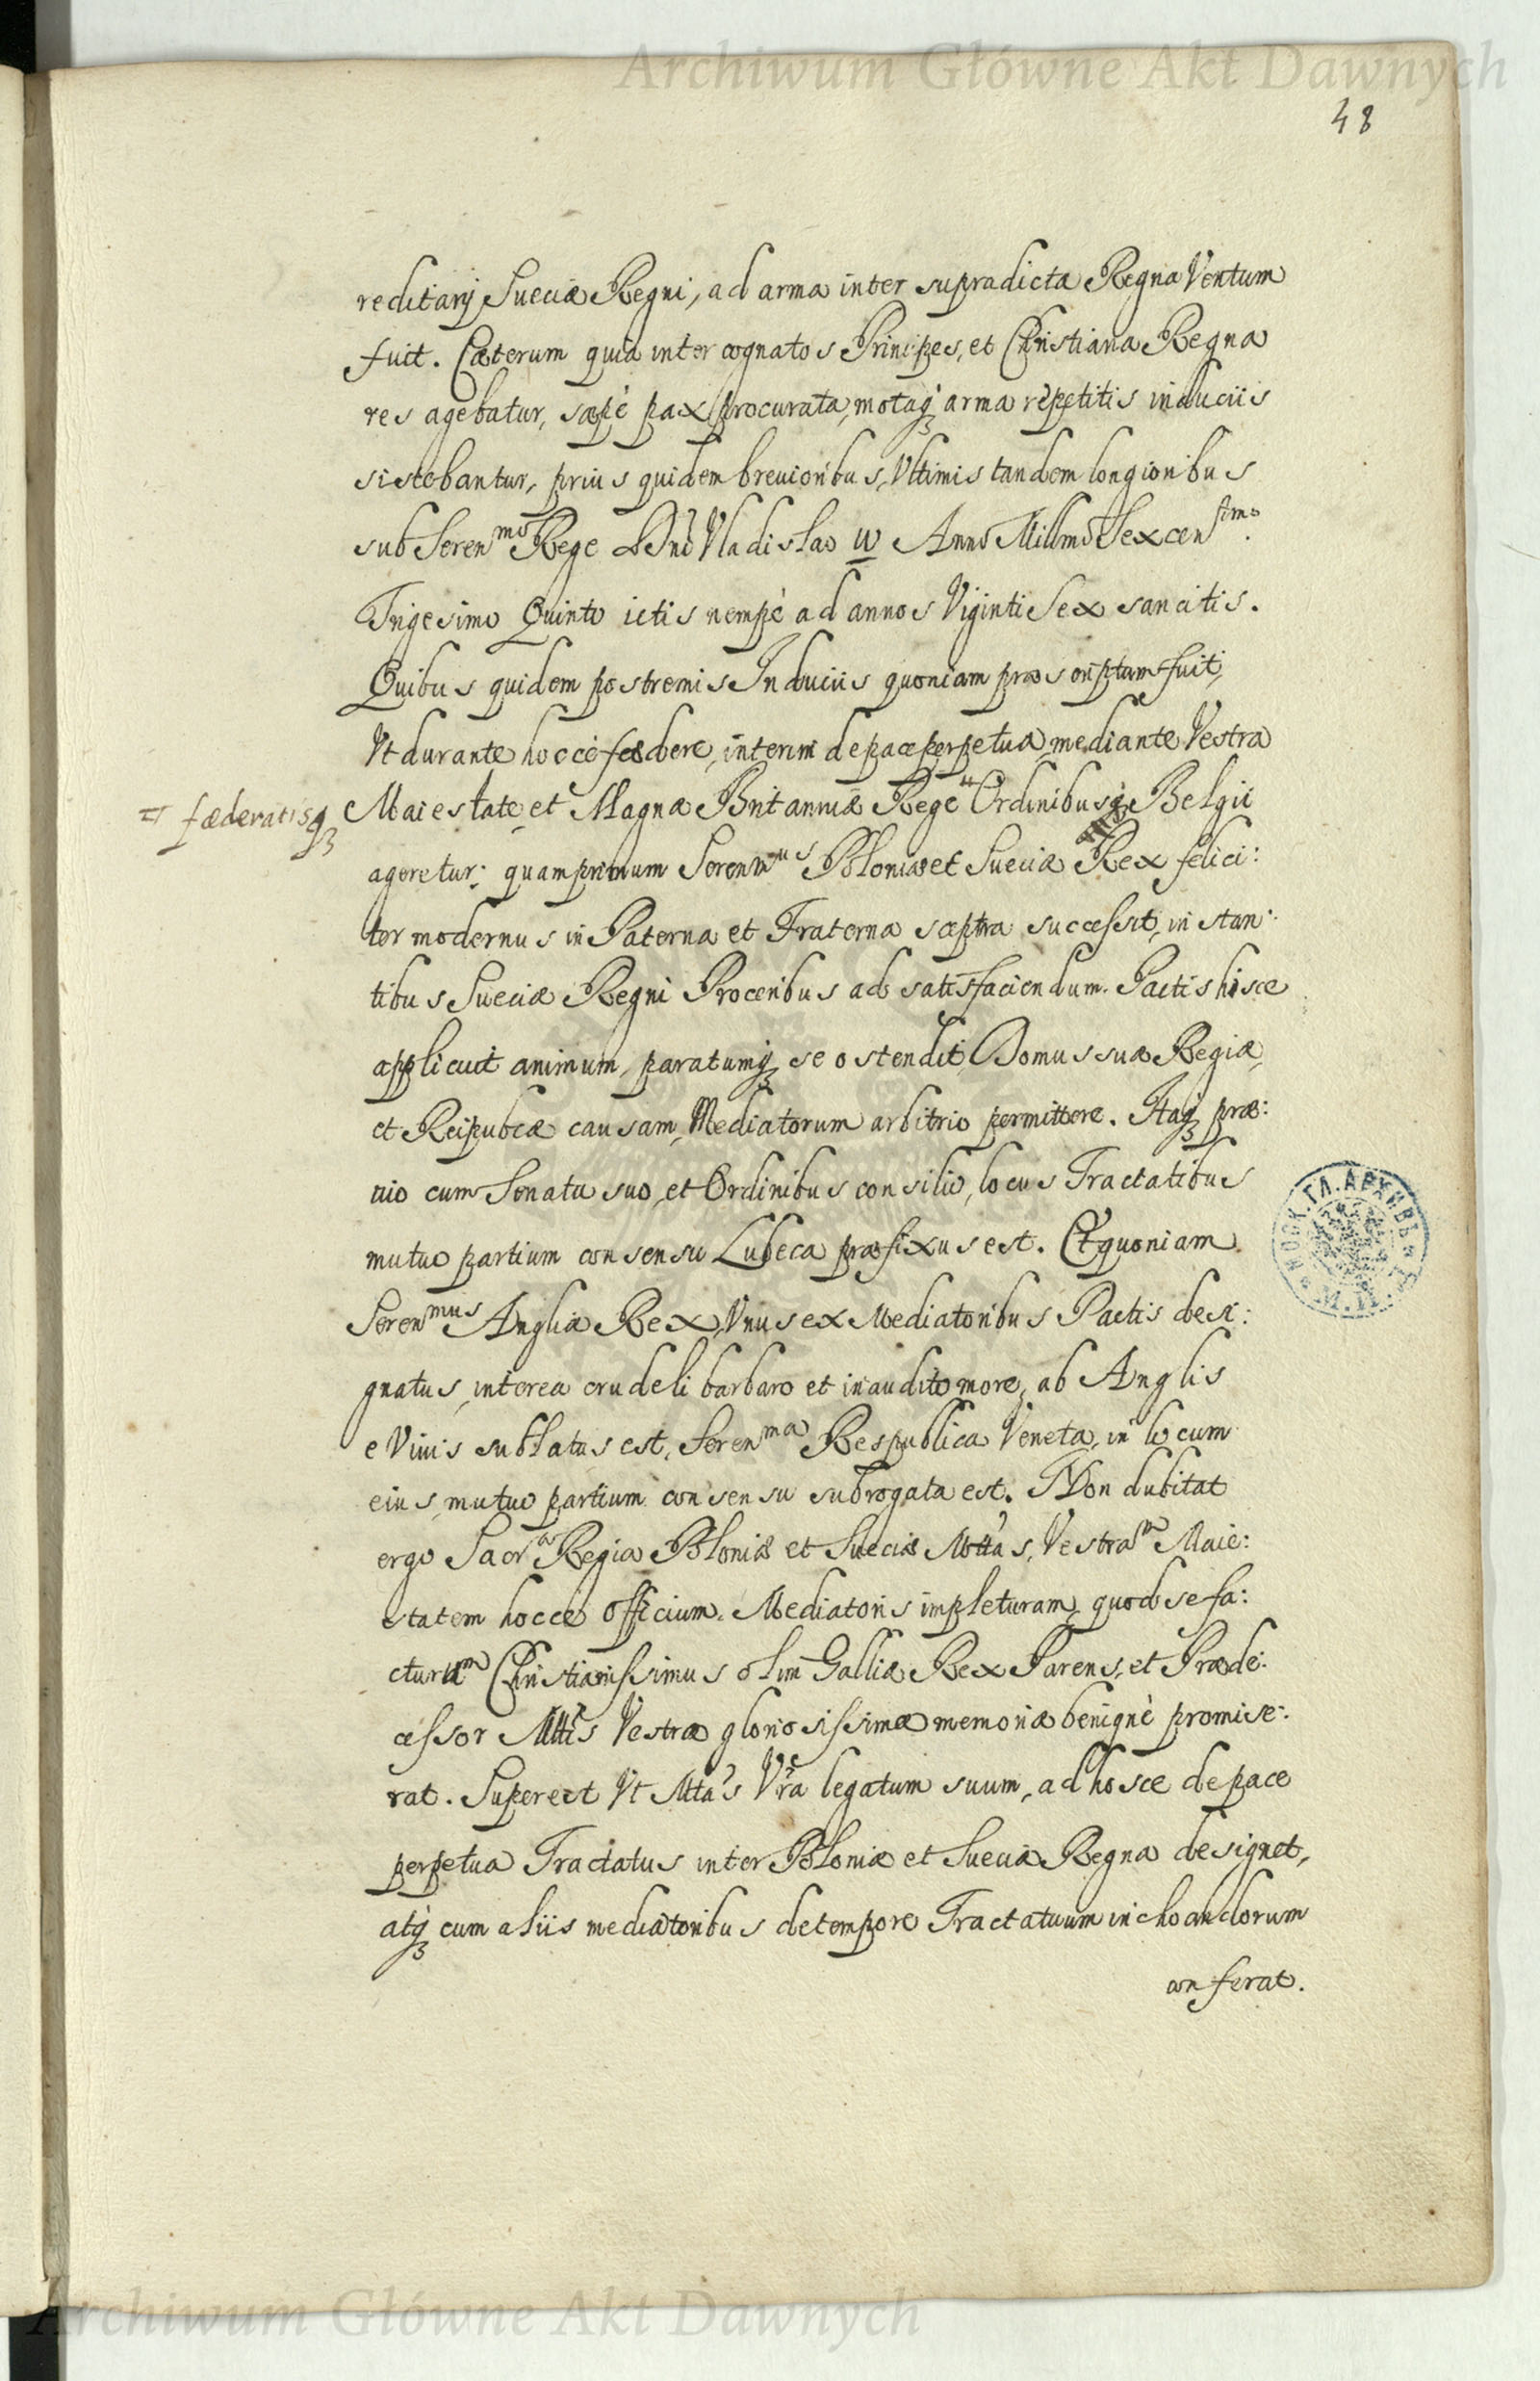 Archiwum Główne Akt Dawnych
48
reditarij Sueciæ Regni, ad arma inter supradicta Regna Ventum
fuit. Cæterum quia inter cognatos Principes, et Christiana Regna
res agebatur, sæpè pax procurata, motaq₃ arma repetitis induciis
sistebantur, prius quidem breuioribus, Vltimis tandem longioribus
sub Seren^mo Rege Dno Vladislao IV Anno Millmo Sexcen^stmo.
Trigesimo Quinto ictis nempè ad annos Viginti Sex sancitis.
Quibus quidem postremis Induciis quoniam præscriptum fuit,
Vt durante hocce fœdere, interim de pace perpetua, mediante Vestra
= fæderatisq₃
Maiestate, et Magnæ Britanniæ Rege = Ordinibusq₃ Belgii
ageretur; quamprimum Seren^mus Poloniæ et Sueciæ Rex felici:
ter modernus in Paterna et Fraterna sceptra successit, instan:
tibus Sueciæ Regni Proceribus ad satisfaciendum Pactis hisce
applicuit animum, paratumq₃ se ostendit, Domus suæ Regiæ,
et Reipubcæ causam, Mediatorum arbitrio permittere. Itaq₃ præ:
uio cum Senatu suo, et Ordinibus consilio, locus Tractatibus
mutuo partium consensu Lubeca præfixus est. Et quoniam
Seren^mus Angliæ Rex, Vnus ex Mediatoribus Pactis desi:
gnatus, interea crudeli barbaro et inaudito more, ab Anglis
e Viuis sublatus est, Seren^ma Respublica Veneta, in locum
eius, mutuo partium consensu subrogata est. Non dubitat
ergo Sacr^a Regia Poloniæ et Sueciæ Mttas, Vestra^m Maie:
statem hocce officium Mediatoris impleturam, quod se fa:
cturu^m Christianissimus olim Galliæ Rex Parens, et Præde:
cessor Mttis Vestræ gloriosissimæ memoriæ benignè promise:
rat. Superest Vt Mtas Vra legatum suum, ad hosce de pace
perpetua Tractatus inter Poloniæ et Sueciæ Regna designet,
atq₃ cum aliis mediatoribus de tempore Tractatuum inchoandorum
conferat.
Archiwum Główne Akt Dawnych